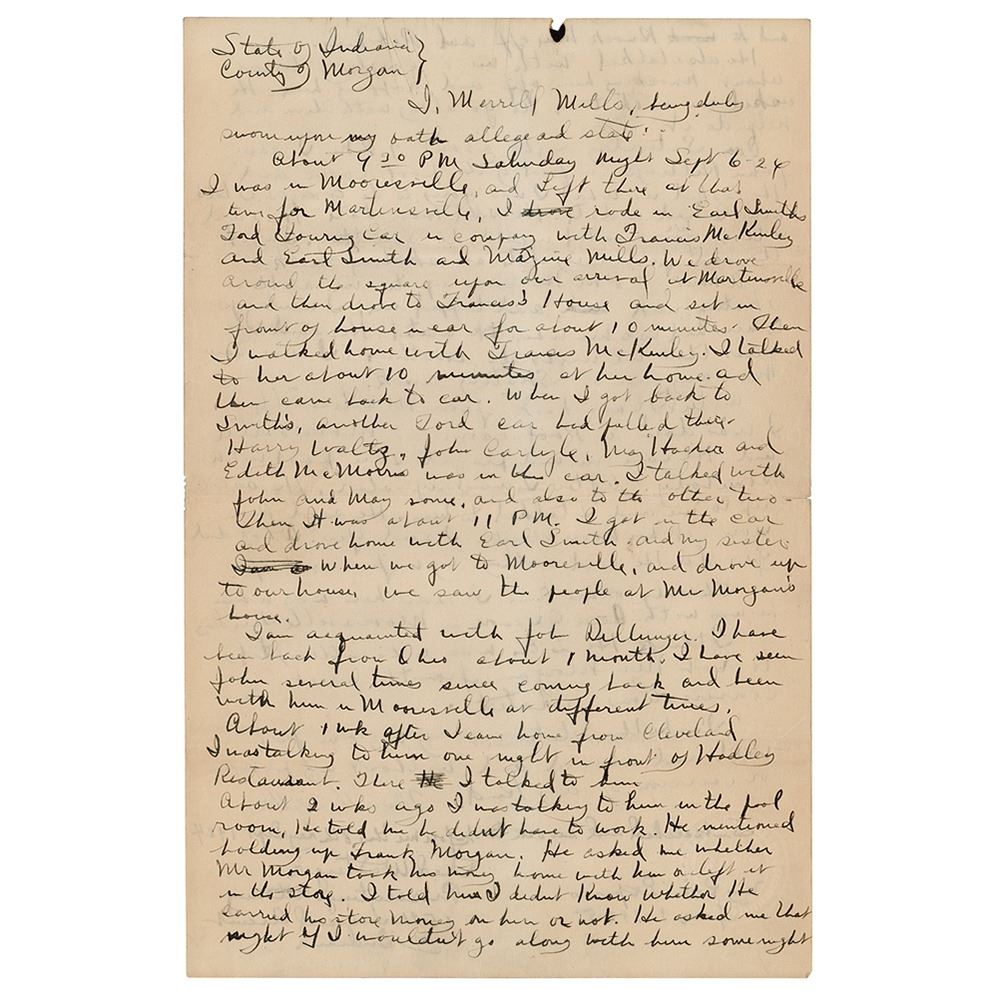 State of Indiana }
County of Morgan }
I, Merrill Mills, being duly
sworn upon my oath allege and state:
About 9 30 PM Saturday Night Sept 6-24
I was in Mooresville, and left there at that
time for Martinsville, I drove rode in Earl Smiths
Ford Touring Car in company with Francis McKinley
and Earl Smith and Maxine Mills. We drove
around the square upon our arrival at Martinsville
and then drove to Francis's House and set in
front of house in car for about 10 minutes. Then
I walked home with Francis McKinley. I talked
to her about 10 minutes at her home and
then came back to car. When I got back to
Smith's, another Ford car had pulled there.
Harry Waltz, John Carlyle, May Hacker and
Edith McMorris was in the car. I talked with
John and May some, and also to the other two.
Then It was about 11 PM. I got in the car
and drove home with Earl Smith and my sister.
When we got to Mooresville, and drove up
to our house, we saw the people at Mr Morgan's
house.
I am acquainted with John Dillinger. I have
been back from Ohio about 1 month. I have seen
John several times since coming back and been
with him in Mooresville at different times.
About 1 wk after I came home from Cleveland
I was talking to him one night in front of Hadley
Restaurant. There I talked to him
About 2 wks ago I was talking to him in the pool
room, He told me he didnt have to work. He mentioned
holding up Frank Morgan. He asked me whether
Mr Morgan took his money home with him or left it
in the store. I told him I didnt know whether He
carried his store money on him or not. He asked me that
night if I wouldn't go along with him some night